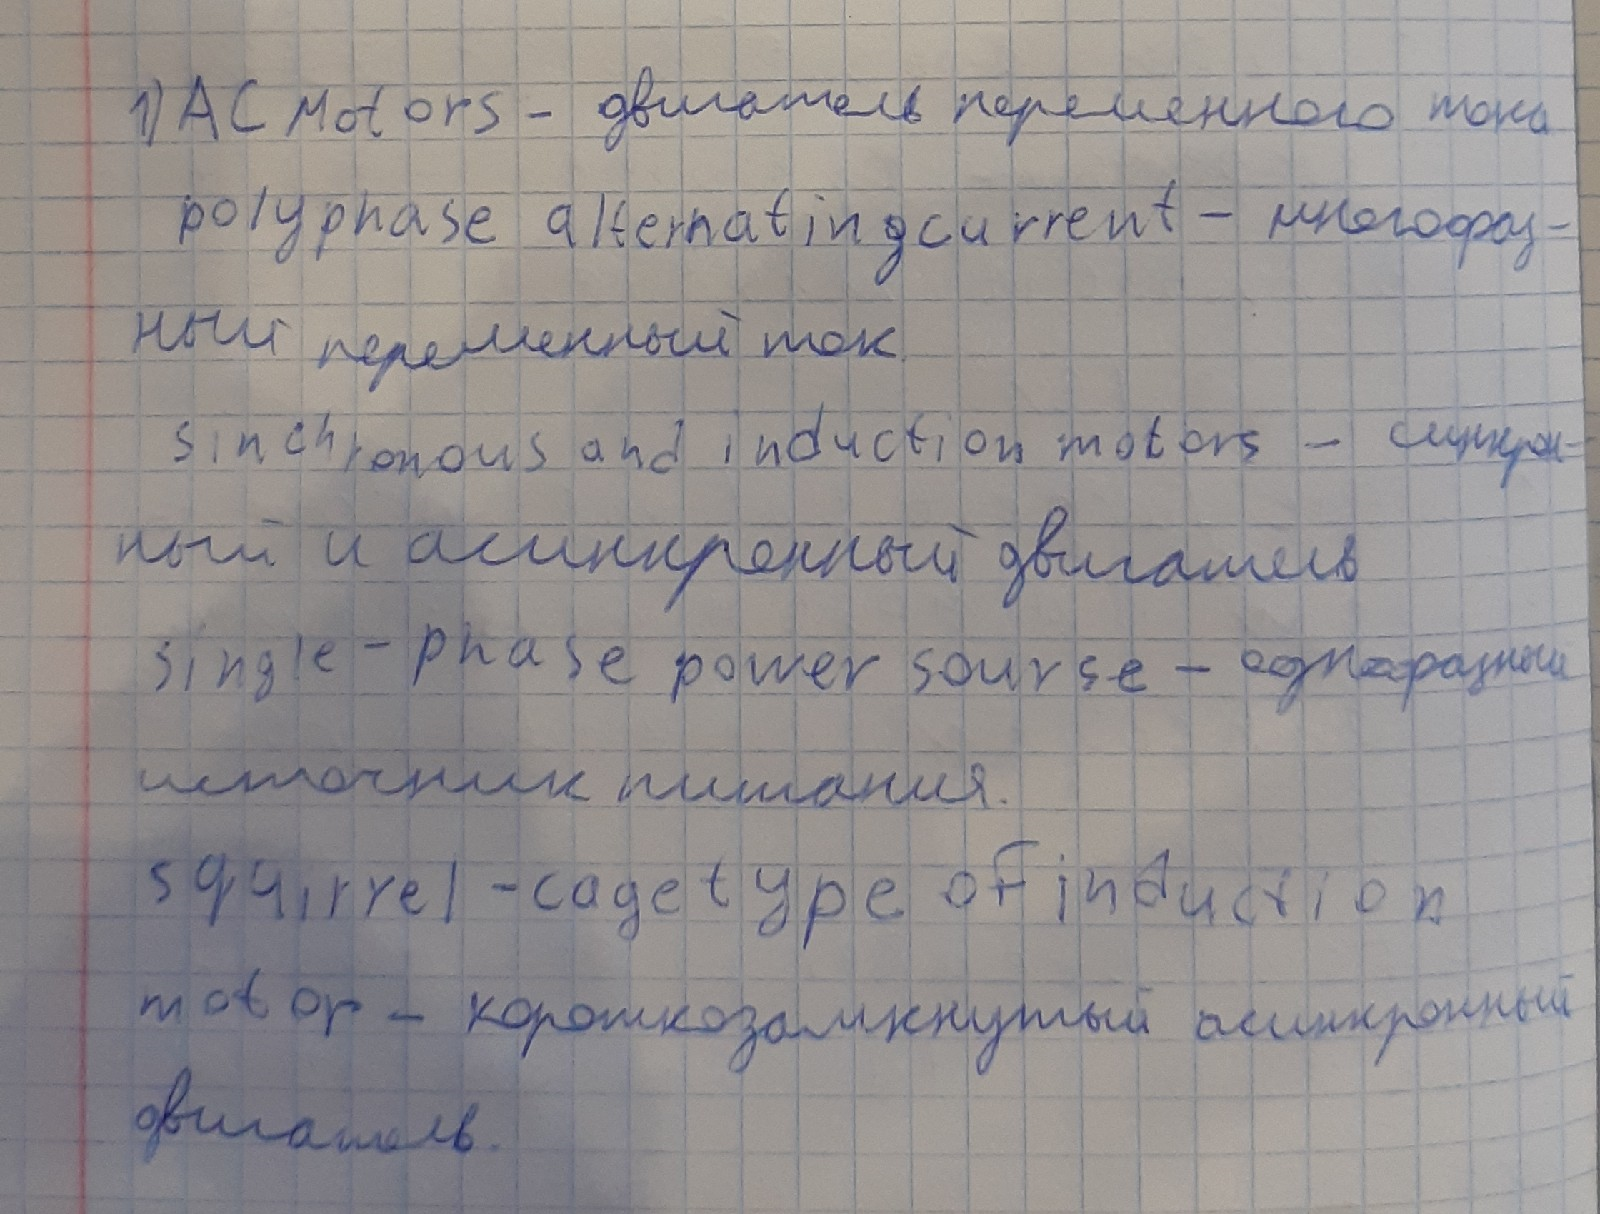 1) AC Motors - двигатель переменного тока
polyphase alternating current - многофаз-
ный переменный ток
sinchronous and induction motors - синхрон-
ный и асинхронный двигатель
single-phase power sourse - однофазный
источник питания.
squirrel-cage type of induction
motor - короткозамкнутый асинхронный
двигатель.